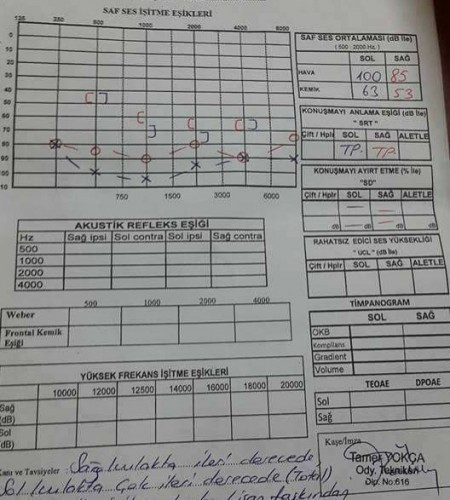 SAF SES İŞİTME EŞİKLERİ
125 250 500 1000 2000 4000 8000
0
10
20
30
40
50
60
70
80
90
100
10
750 1500 3000 6000
SAF SES ORTALAMASI (dB İle)
( 500 : 2000 Hz. )
SOL SAĞ
HAVA 100 85
KEMİK 63 53
KONUŞMAYI ANLAMA EŞİĞİ (dB İle)
" SRT "
Çift / Hplr SOL SAĞ ALETLE
TP. TP.
KONUŞMAYI AYIRT ETME (% İle)
"SD"
Çift / Hplr SOL SAĞ ALETLE
dB dB dB dB
RAHATSIZ EDİCİ SES YÜKSEKLİĞİ
" UCL " (dB İle)
Çift / Hplr SOL SAĞ ALETLE
AKUSTİK REFLEKS EŞİĞİ
Hz Sağ ipsi Sol contra Sol ipsi Sağ contra
500
1000
2000
4000
500 1000 2000 4000
Weber
Frontal Kemik
Eşiği
TİMPANOGRAM
SOL SAĞ
OKB
Komplians
Gradient
Volume
TEOAE DPOAE
Sol
Sağ
YÜKSEK FREKANS İŞİTME EŞİKLERİ
10000 12000 12500 14000 16000 18000 20000
Sağ
(dB)
Sol
(dB)
Kaşe/İmza
Tamer YOKÇA
Ody. Teknikeri
Dip. No:616
anı ve Tavsiyeler : Sağ kulakta ileri derecede
Sol kulakta çok ileri derecede (Total)